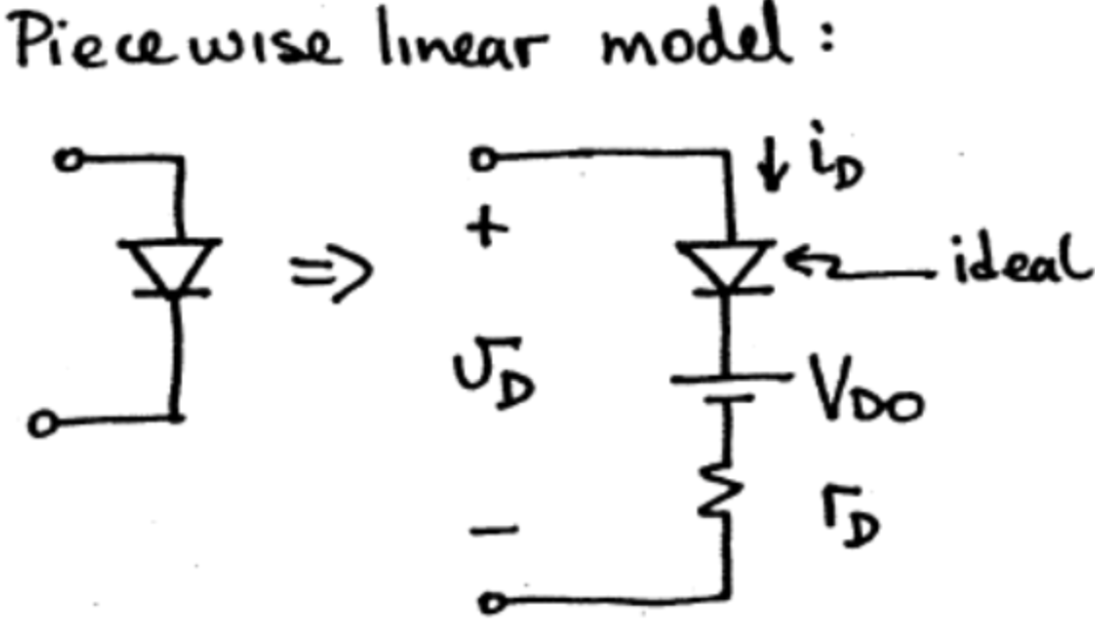 Piecewise linear model:
i_D
+
ideal
⇒
v_D
V_DO
r_D
−